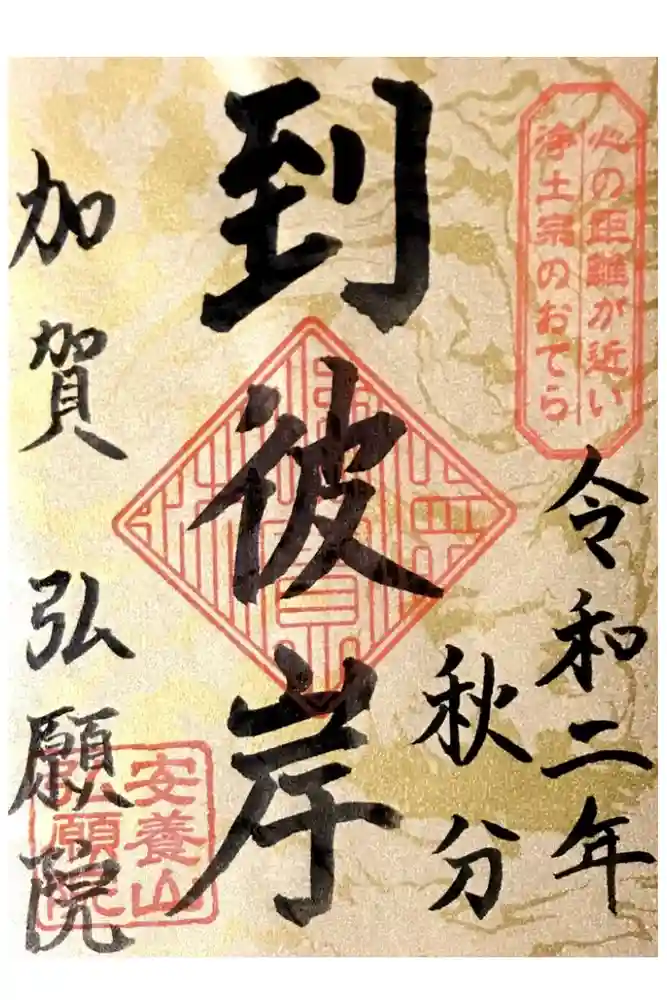 心の距離が近い
浄土宗のおてら
令和二年
秋分
到彼岸
加賀 弘願院
安養山
弘願院